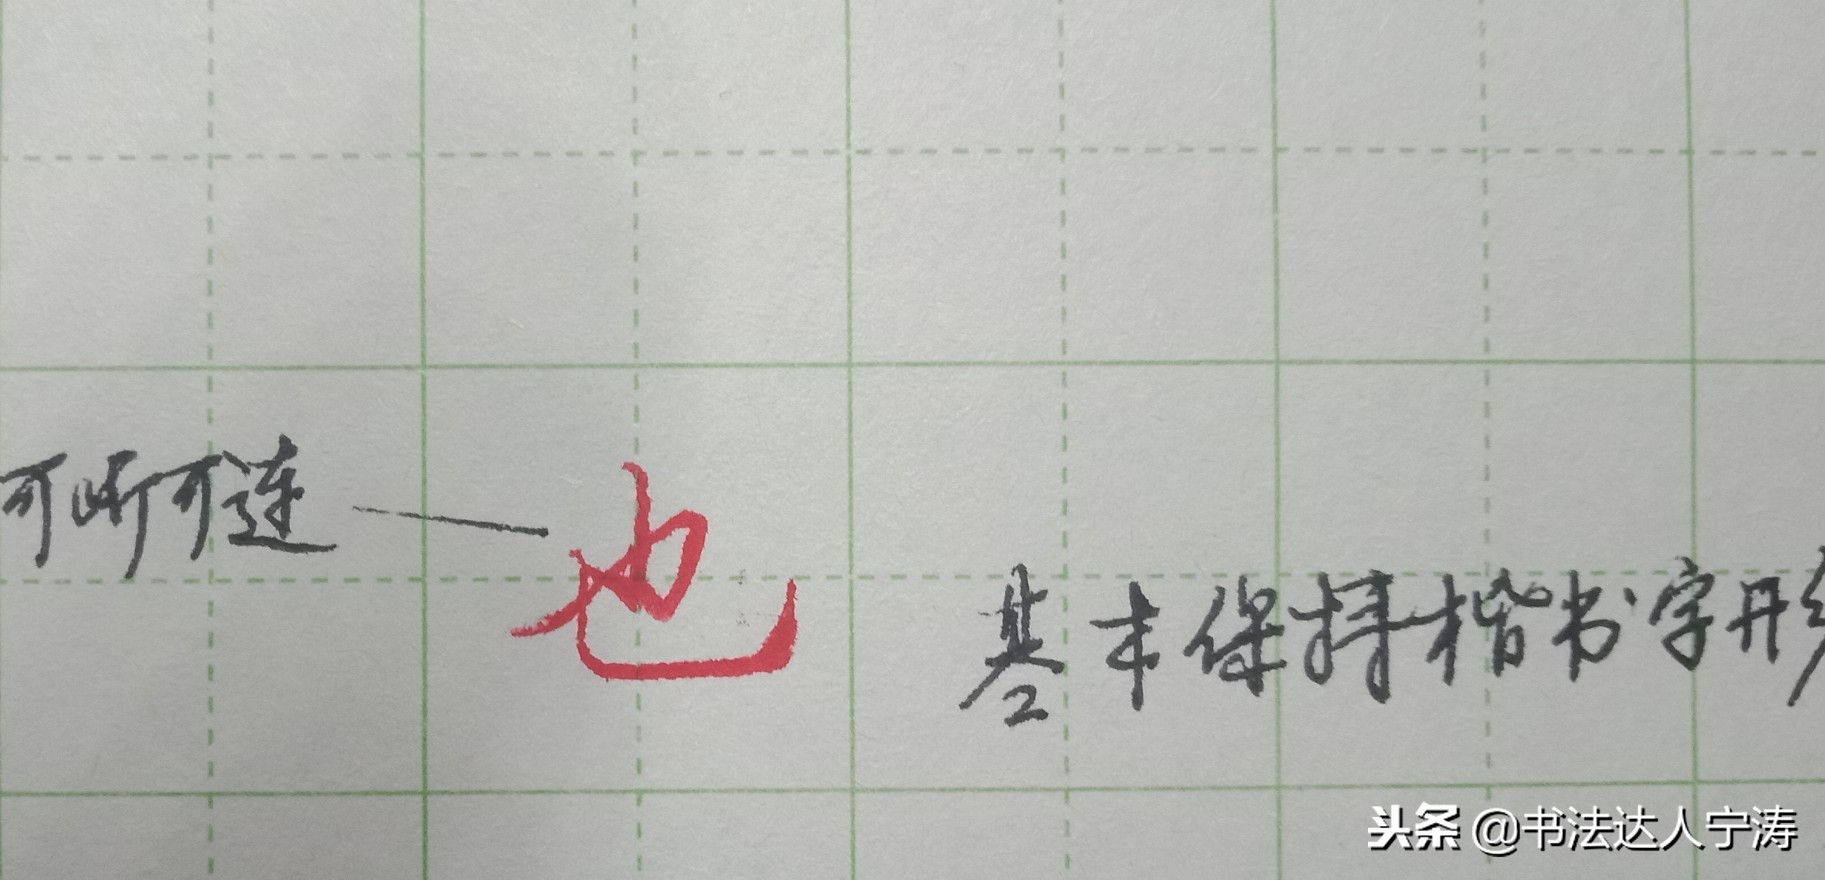 可断可连
也
基本保持楷书字形
头条 @书法达人宁涛